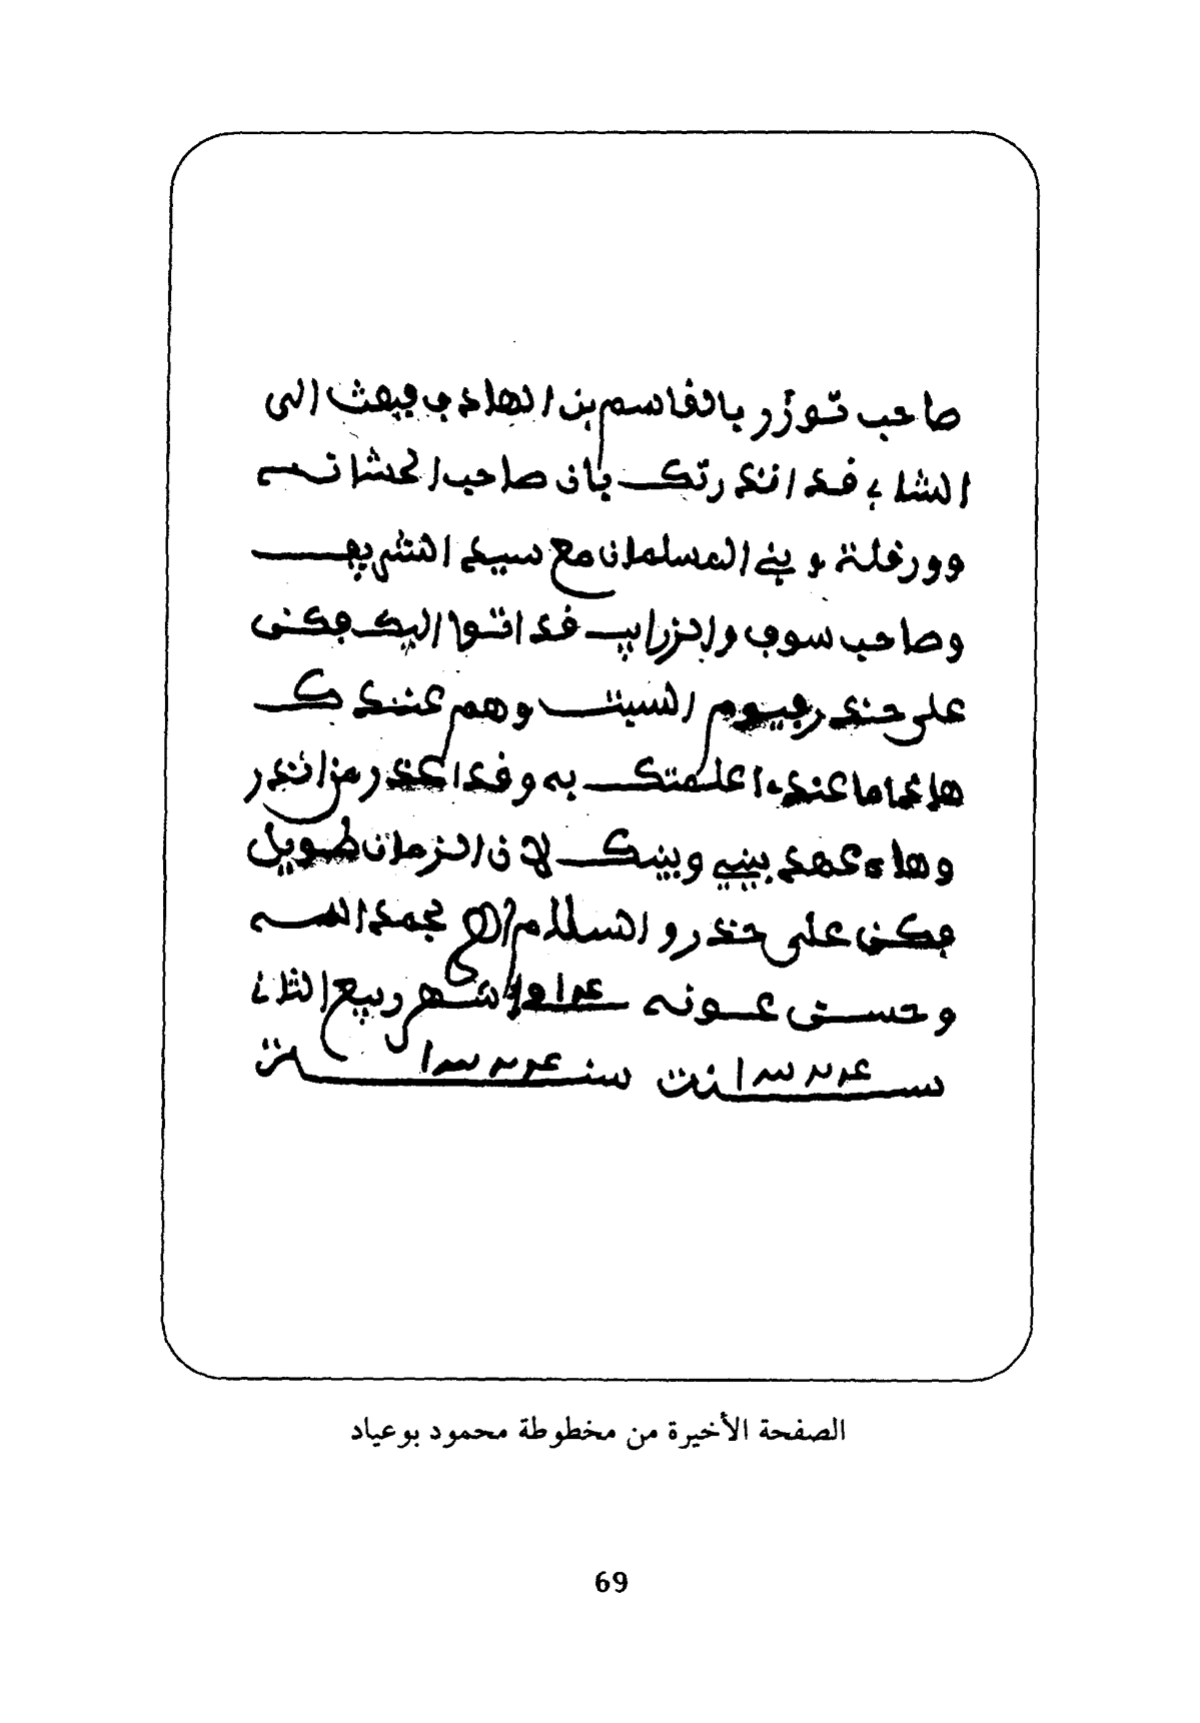 صاحب توزر بالقاسم بن الهادي فبعث الى
الشاي قد انذرتك بان صاحب الخشانــه
وورقلة و بني المسلمان مع سيد الشريف
وصاحب سوف والزاب قد اتوا اليك فكن
على حذر فيوم السبت وهم عندك
هذا ما عنده اعلمتك به وقد اعذر من انذر
وهاء عهد بيني وبينك لان الزمان طويل
فكن على حذر والسلام اهـ بحمد الله
وحسن عونه شهر ربيع الثاني
الصفحة الأخيرة من مخطوطة محمود بوعياد
69